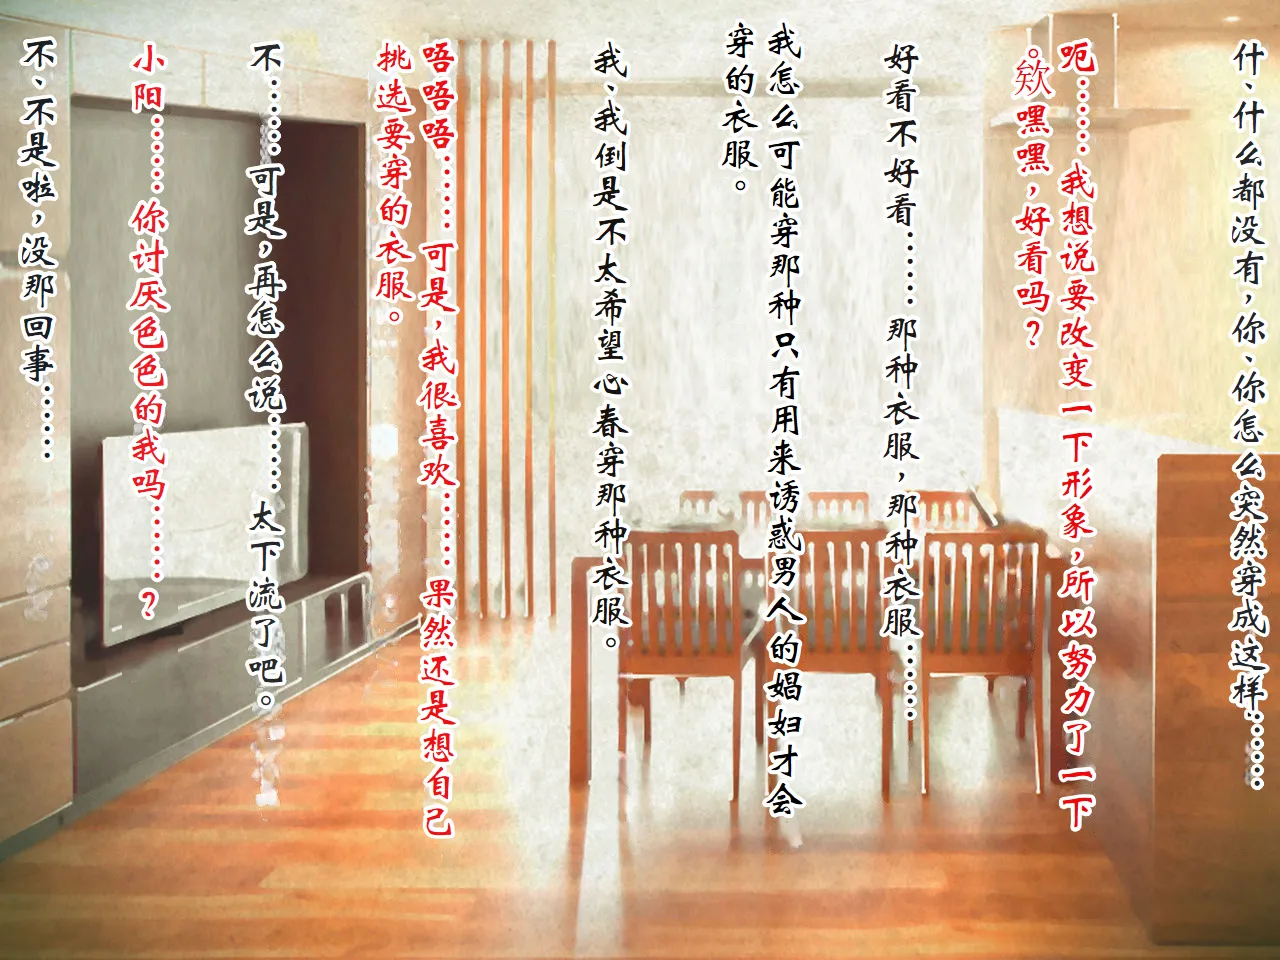 什、什么都没有，你、你怎么突然穿成这样………
呃……我想说要改变一下形象，所以努力了一下
。欸嘿嘿，好看吗？
好看不好看……那种衣服，那种衣服……
我怎么可能穿那种只有用来诱惑男人的娼妇才会
穿的衣服。
我、我倒是不太希望心春穿那种衣服。
唔唔唔……可是，我很喜欢………果然还是想自己
挑选要穿的衣服。
不………可是，再怎么说………太下流了吧。
小阳………你讨厌色色的我吗………？
不、不是啦，没那回事………